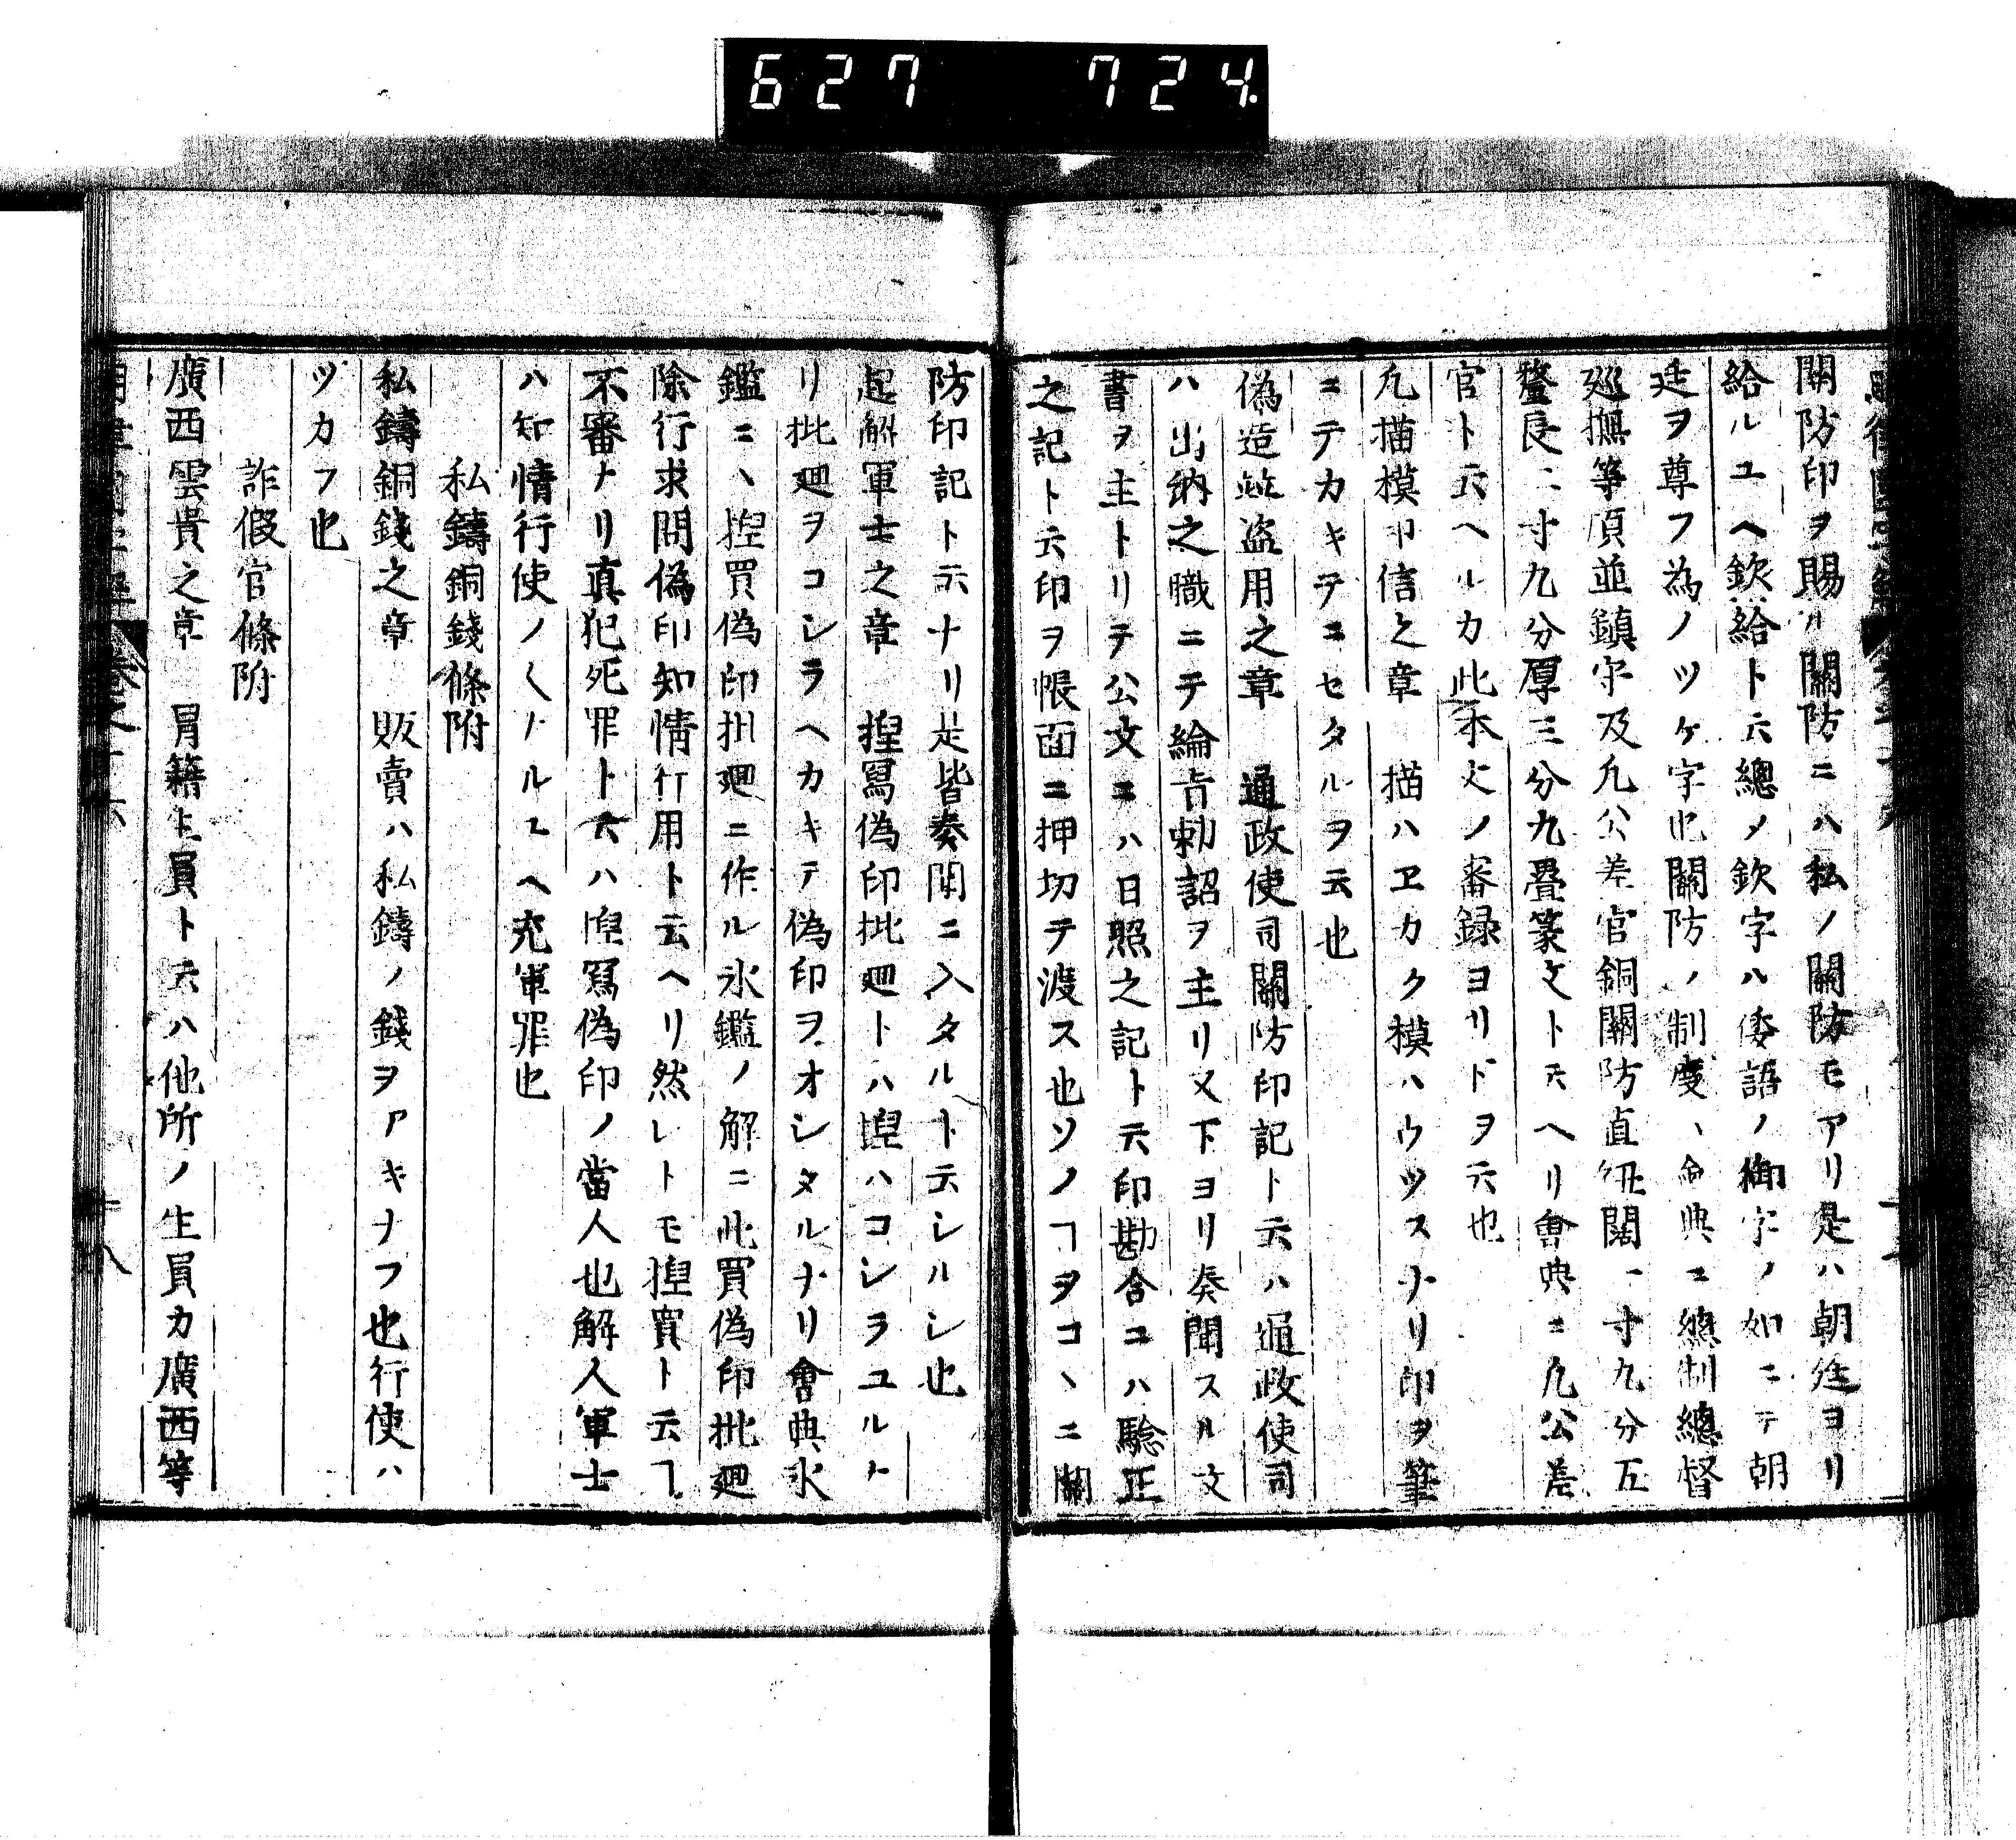 627 724
關防印ヲ賜ル關防ニハ私ノ關防モアリ是ハ朝廷ヨリ
給ルユヘ欽給ト云總メ欽字ハ倭語ノ御字ノ如ニテ朝
廷ヲ尊フ為ノツケ字也關防ノ制度ヽ會典ニ總制總督
巡撫等項並鎮守及凢公差官銅關防直紐闊一寸九分五
釐長二寸九分厚三分九疊篆文ト云ヘリ會典ニ凢公差
官ト云ヘルカ此本文ノ審録ヨリドヲ云也
凢描模印信之章 描ハヱカク模ハウツスナリ印ヲ筆
ニテカキテニセタルヲ云也
偽造並盗用之章 通政使司關防印記ト云ハ通政使司
ハ出納之職ニテ綸旨勅詔ヲ主リ又下ヨリ奏聞スル文
書ヲ主トリテ公文ニハ日照之記ト云印勘合ニハ騐正
之記ト云印ヲ帳面ニ押切テ渡ス也ソノヿヲコヽニ關
防印記ト云ナリ是皆奏聞ニ入タルト云シルシ也
起解軍士之章 揑冩偽印批廻トハ揑ハコシラユルト
リ批廻ヲコシラヘカキテ偽印ヲオシタルナリ會典氷
鑑ニハ揑買偽印批廻ニ作ル氷鑑ノ解ニ此買偽印批廻
除行求問偽印知情行用ト云ヘリ然レトモ揑買ト云ヿ
不審ナリ真犯死罪ト云ハ揑冩偽印ノ當人也解人軍士
ハ知情行使ノ〱ナルユヘ充軍罪也
私鑄銅錢條附
私鑄銅錢之章 販賣ハ私鑄ノ錢ヲアキナフ也行使ハ
ツカフ也
詐假官條附
廣西雲貴之章 冐籍生員ト云ハ他所ノ生員カ廣西等
巻之十六 十八